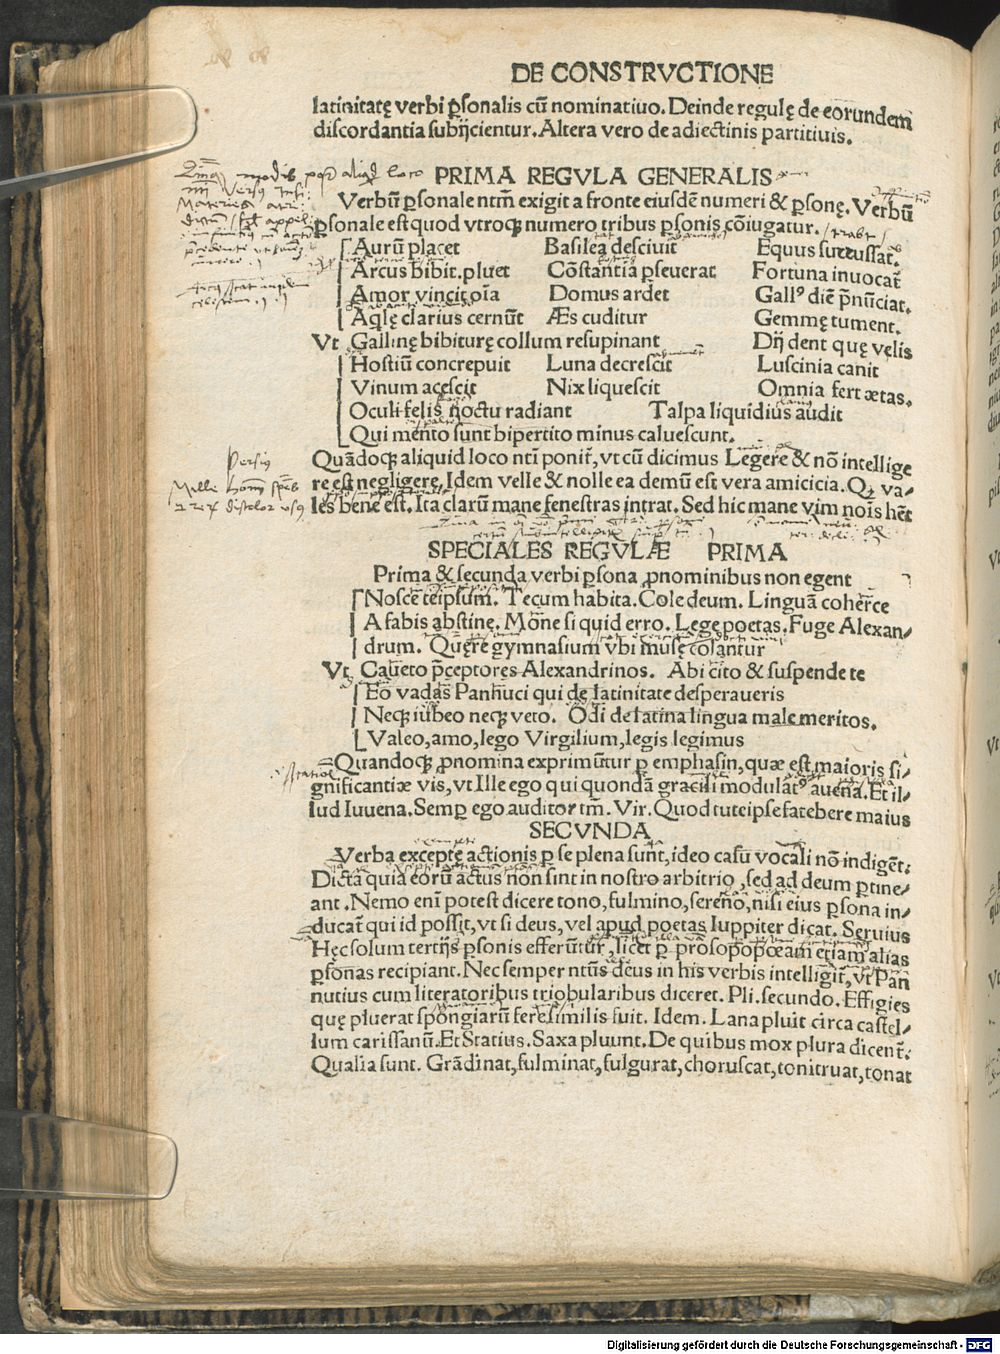 DE CONSTRVCTIONE
latinitatę verbi ꝑsonalis cū nominatiuo. Deinde regulę de eorundem
discordantia subijcientur. Altera vero de adiectinis partitiuis.
PRIMA REGVLA GENERALIS
Verbū ꝑsonale ntm̄ exigit a fronte eiusdē numeri & ꝑsonę. Verbū
ꝑsonale est quod vtroqꝫ numero tribus ꝑsonis cōiugatur.
Aurū placet Basilea desciuit Equus succussat.
Arcus bibit. pluet Cōstantia ꝑseuerat Fortuna inuocat̄
Amor vincit oīa Domus ardet Gallꝰ diē p̄nūciat.
Aqlę clarius cernūt Æs cuditur Gemmę tument.
Vt Gallinę bibiturę collum resupinant Dij dent quę velis
Hostiū concrepuit Luna decrescit Luscinia canit
Vinum acescit Nix liquescit Omnia fert ætas.
Oculi felis noctu radiant Talpa liquidius audit
Qui mento sunt bipertito minus caluescunt.
Quādoqꝫ aliquid loco ntī ponit̄, vt cū dicimus Legere & nō intellige
re est negligere. Idem velle & nolle ea demū est vera amicicia. Qꝫ va-
les bene est. Ita clarū mane fenestras intrat. Sed hic mane vim noīs hēt
Persius
Mille
SPECIALES REGVLÆ PRIMA
Prima & secunda verbi ꝑsona ꝓnominibus non egent
Nosce teipsum. Tecum habita. Cole deum. Linguā coherce
A fabis abstinę. Mone si quid erro. Lege poetas. Fuge Alexan-
drum. Quęre gymnasium vbi musę colantur
Vt Caueto p̄ceptores Alexandrinos. Abi cito & suspende te
Eo vadas Panhuci qui de latinitate desperaueris
Neqꝫ iubeo neqꝫ veto. Odi de latina lingua male meritos.
Valeo, amo, lego Virgilium, legis legimus
Quandoqꝫ ꝓnomina exprimūtur ꝑ emphasin, quæ est maioris si-
gnificantiæ vis, vt Ille ego qui quondā gracili modulatꝰ auena. Et il-
lud Iuuena. Semꝑ ego auditor tm̄. Vir. Quod tuteipse fatebere maius
SECVNDA
Verba exceptę actionis ꝑ se plena sunt, ideo casu vocali nō indigēt.
Dicta quia eorū actus non sint in nostro arbitrio, sed ad deum ꝑtine-
ant. Nemo enī potest dicere tono, fulmino, sereno, nisi eius ꝑsona in-
ducat̄ qui id possit, vt si deus, vel apud poetas Iuppiter dicat. Seruius
Hęc solum tertijs ꝑsonis efferūtur, licet ꝑ prosopopœam etiam alias
ꝑsonas recipiant. Nec semper ntūs deus in his verbis intelligit̄, vt Pan
nutius cum literatoribus triobularibus diceret. Pli. secundo. Effigies
quę pluerat spongiarū fere similis fuit. Idem. Lana pluit circa castel-
lum carissanū. Et Statius. Saxa pluunt. De quibus mox plura dicent̄.
Qualia sunt. Grādinat, fulminat, fulgurat, choruscat, tonitruat, tonat
Digitalisierung gefördert durch die Deutsche Forschungsgemeinschaft - DFG